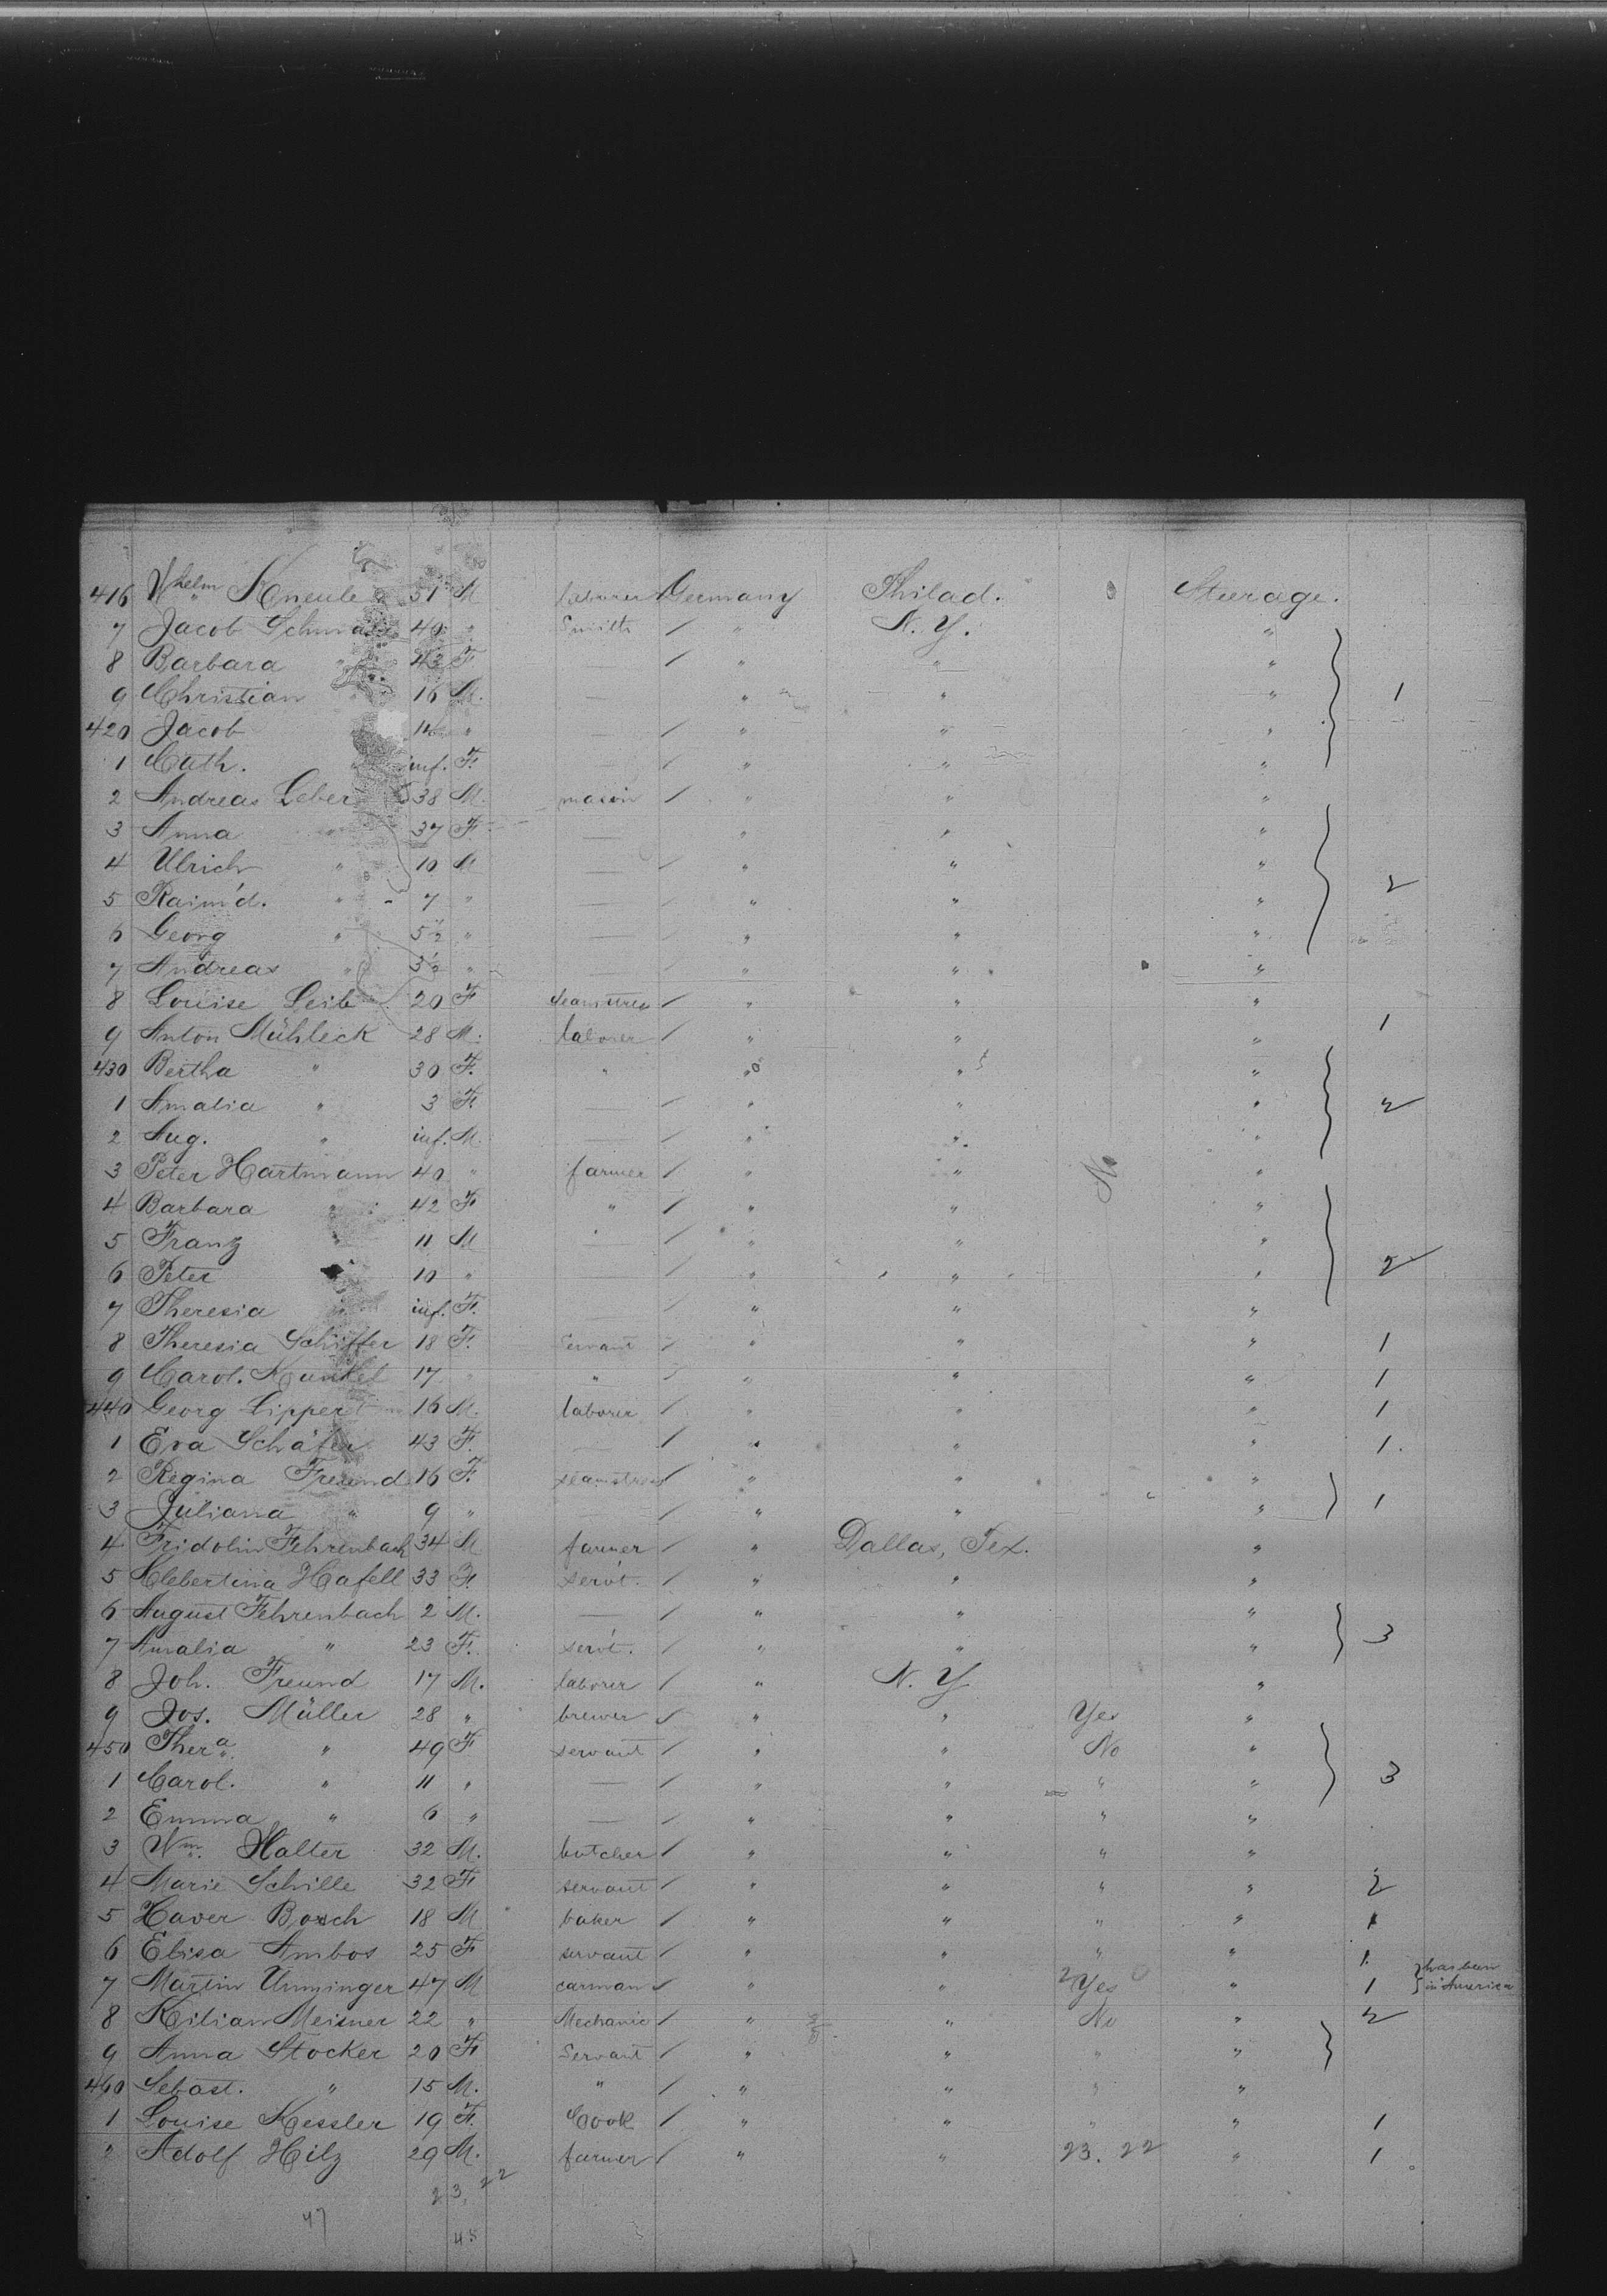 416 Whelm Kneule 51 M laborer Germany Philad. Steerage.
7 Jacob 40 " Smith / " N. Y. "
8 Barbara " 43 F — / " " "
9 Christian " 16 M. — " " " 1
420 Jacob 14 " — / " " "
1 Cath. " inf. F. — / " " "
2 Andreas Leber 38 M. mason / " " "
3 Anna " 37 F — " " "
4 Ulrich " 10 M — / " " "
5 Raim'd. " 7 " — / " " " 2
6 Georg " 5½ " — / " " "
7 Andreas " 3½ " — / " " "
8 Louise Leib 20 F seamstress / " " "
9 Anton Mühleck 28 M. laborer / " " " 1
430 Bertha " 30 F. " " " "
1 Amalia " 3 F. — / " " " 2
2 Aug. " inf. M. — / " " "
3 Peter Hartmann 40 " farmer / " " No "
4 Barbara " 42 F " / " " "
5 Franz " 11 M — / " " "
6 Peter 10 " — / " " " 2
7 Theresia " inf. F. — / " " "
8 Theresia Schiffer 18 F. Servant / " " " 1
9 Carol. Kunkel 17 " " / " " " 1
440 Georg Lippert 16 M. laborer / " " " 1
1 Eva Schäfer 43 F. — / " " " 1.
2 Regina Freund 16 F. seamstress / " " "
3 Juliana " 9 " — / " " " 1
4 Fridolin Fehrenbach 34 M farmer " Dallas, Tex. "
5 Hafell 33 F. servt. / " " "
6 August Fehrenbach 2 M. — / " " "
7 Amalia " 23 F. servt. / " " " 3
8 Joh. Freund 17 M. laborer / " N. Y. "
9 Jos. Müller 28 " brewer / " " Yes "
450 Thera " 49 F servant / " " No "
1 Carol. " 11 " — / " " " " 3
2 Emma " 6 " — / " " " "
3 Wm. Halter 32 M. butcher / " " " "
4 Marie Schille 32 F servant / " " " " 2
5 Xaver Bosch 18 M baker / " " " " 1
6 Elisa Ambos 25 F servant / " " " " 1.
7 Martin Unminger 47 M carman / " " Yes " 1 } has been in America
8 Kilian Meisner 22 " Mechanic / " " No " 2
9 Anna Stocker 20 F Servant / " " " "
460 Sebast. " 15 M. " / " " " "
1 Louise Kessler 19 F. Cook / " " " " 1
2 Adolf Hilz 29 M. farmer / " " 23. 22 " 1
23, 22
47
45